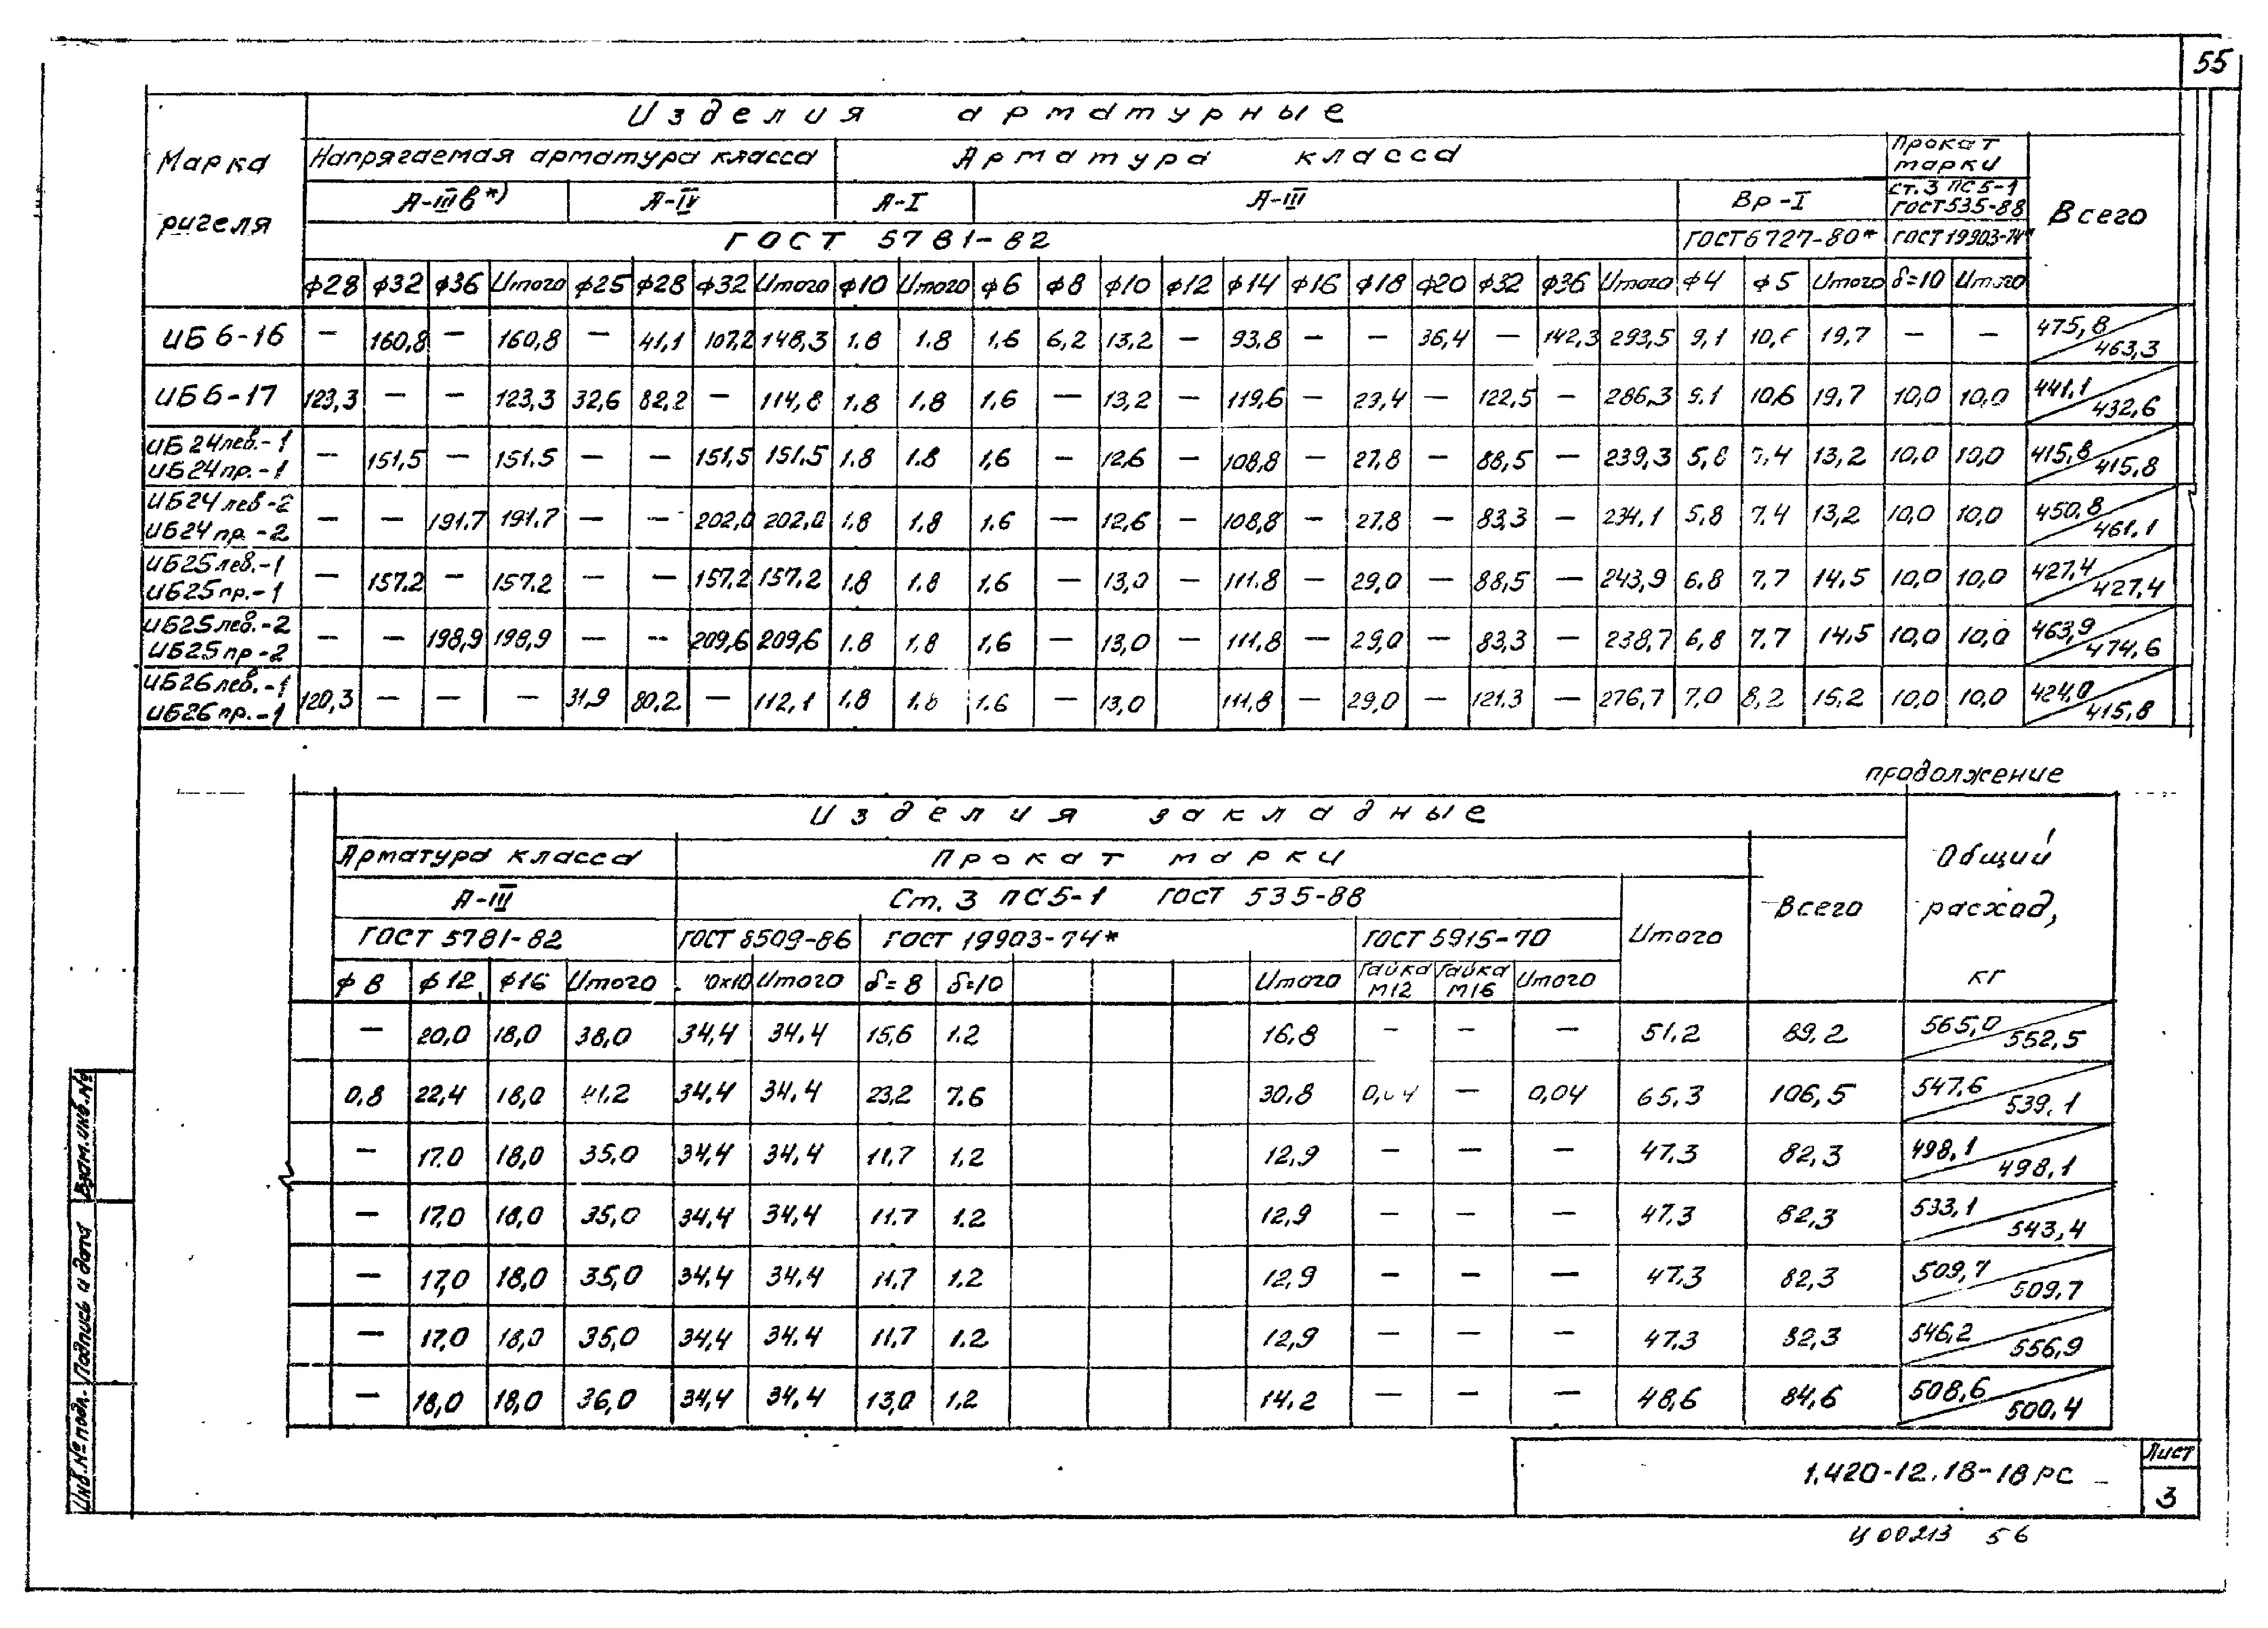 55
Изделия арматурные
Марка ригеля
Напрягаемая арматура класса
Арматура класса
Прокат марки
А-IIIв*) А-IV А-I А-III Вр-I
ст.3 ПС5-1 ГОСТ 535-88
Всего
ГОСТ 5781-82 ГОСТ 6727-80* ГОСТ 19903-74*
ф28 ф32 ф36 Итого ф25 ф28 ф32 Итого ф10 Итого ф6 ф8 ф10 ф12 ф14 ф16 ф18 ф20 ф32 ф36 Итого ф4 ф5 Итого δ=10 Итого
ИБ 6-16 — 160,8 — 160,8 — 41,1 107,2 148,3 1.8 1.8 1.6 6,2 13,2 — 93,8 — — 36,4 — 142,3 293,5 9,1 10,6 19,7 — — 475,8 / 463,3
ИБ6-17 123,3 — — 123,3 32,6 82,2 — 114,8 1.8 1.8 1.6 — 13,2 — 119,6 — 29,4 — 122,5 — 286,3 9.1 10,6 19,7 10,0 10,0 441,1 / 432,6
ИБ24лев.-1
ИБ24пр.-1 — 151,5 — 151.5 — — 151,5 151,5 1.8 1.8 1,6 — 12,6 — 108,8 — 27,8 — 88,5 — 239,3 5,8 7,4 13,2 10,0 10,0 415,8 / 415,8
ИБ24лев-2
ИБ24пр.-2 — — 191.7 191.7 — — 202,0 202,0 1.8 1.8 1.6 — 12,6 — 108,8 — 27.8 — 83,3 — 234,1 5,8 7,4 13,2 10,0 10,0 450,8 / 461,1
ИБ25лев.-1
ИБ25пр.-1 — 157.2 — 157.2 — — 157,2 157,2 1.8 1.8 1.6 — 13,0 — 111.8 — 29,0 — 88,5 — 243,9 6.8 7,7 14,5 10,0 10,0 427,4 / 427,4
ИБ25лев.-2
ИБ25пр-2 — — 198,9 198,9 — — 209,6 209,6 1.8 1,8 1,6 — 13,0 — 111,8 — 29,0 — 83,3 — 238,7 6,8 7.7 14,5 10,0 10,0 463,9 / 474,6
ИБ26лев.-1
ИБ26пр.-1 120,3 — — — 31,9 80,2 — 112,1 1,8 1.8 1.6 — 13,0 111,8 — 29,0 — 121.3 — 276,7 7,0 8,2 15,2 10,0 10,0 424,0 / 415,8
продолжение
Изделия закладные
Арматура класса Прокат марки
Общий расход, кг
А-III Ст. 3 ПС5-1 ГОСТ 535-88
Итого Всего
ГОСТ 5781-82 ГОСТ 8509-86 ГОСТ 19903-74* ГОСТ 5915-70
ф8 ф12 ф16 Итого 10х10 Итого δ=8 δ=10 Итого Гайка М12 Гайка М16 Итого
— 20,0 18,0 38,0 34,4 34,4 15,6 1.2 16,8 — — — 51,2 89,2 565,0 / 552,5
0,8 22,4 18,0 41.2 34,4 34,4 23,2 7.6 30,8 0,04 — 0,04 65,3 106,5 547,6 / 539,1
— 17.0 18,0 35,0 34,4 34,4 11,7 1.2 12,9 — — — 47.3 82,3 498,1 / 498,1
— 17,0 18,0 35,0 34,4 34,4 11.7 1.2 12,9 — — — 47.3 82,3 533,1 / 543,4
— 17,0 18,0 35,0 34,4 34,4 11,7 1.2 12,9 — — — 47.3 82,3 509,7 / 509,7
— 17,0 18,0 35,0 34,4 34.4 11,7 1.2 12,9 — — — 47.3 82,3 546,2 / 556,9
— 18,0 18,0 36,0 34,4 34,4 13,0 1.2 14,2 — — — 48,6 84,6 508,6 / 500,4
Инв.№ подл. Подпись и дата Взам.инв.№
1.420-12.18-18РС
Лист
3
Ц00213 56